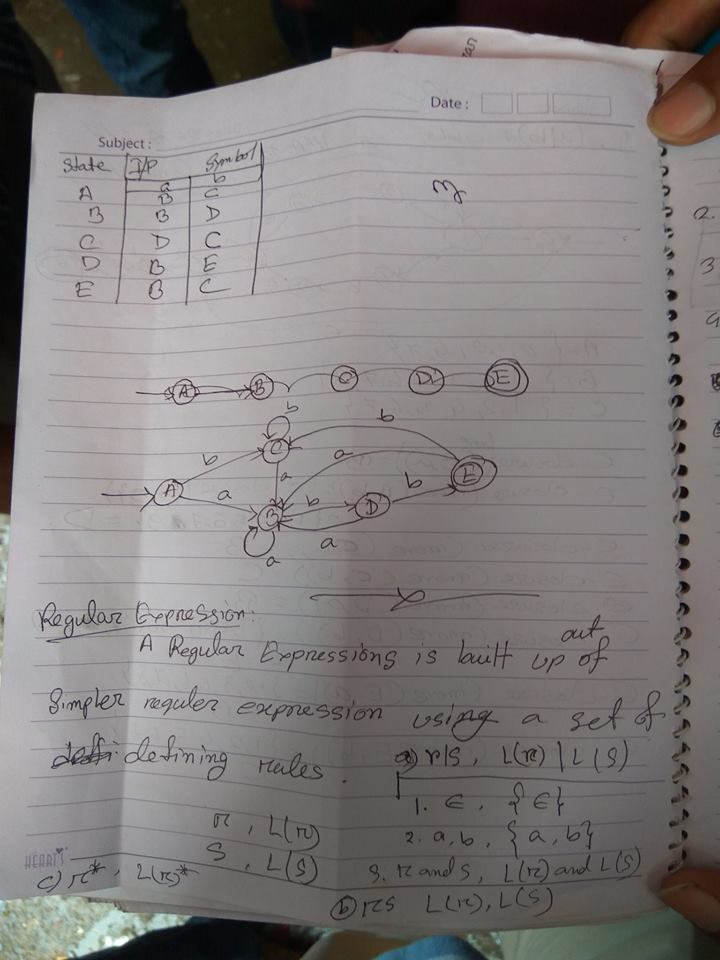 Date :
Subject :
State I/P Symbol
a b
A B C
B B D
C D C
D B E
E B C
A B C D E
b
b b
C a
A a a E
B b D b
a a
Regular Expression:
A Regular Expressions is built up out of
Simpler reguler expression using a set of
defining rules. a) r|s, L(r) | L(s)
1. ∈, {∈}
r, L(r) 2. a, b, {a, b}
s, L(s) 3. r and s, L(r) and L(s)
HEARTS
c) r*, L(r)*
b) rs L(r), L(s)
2.
3